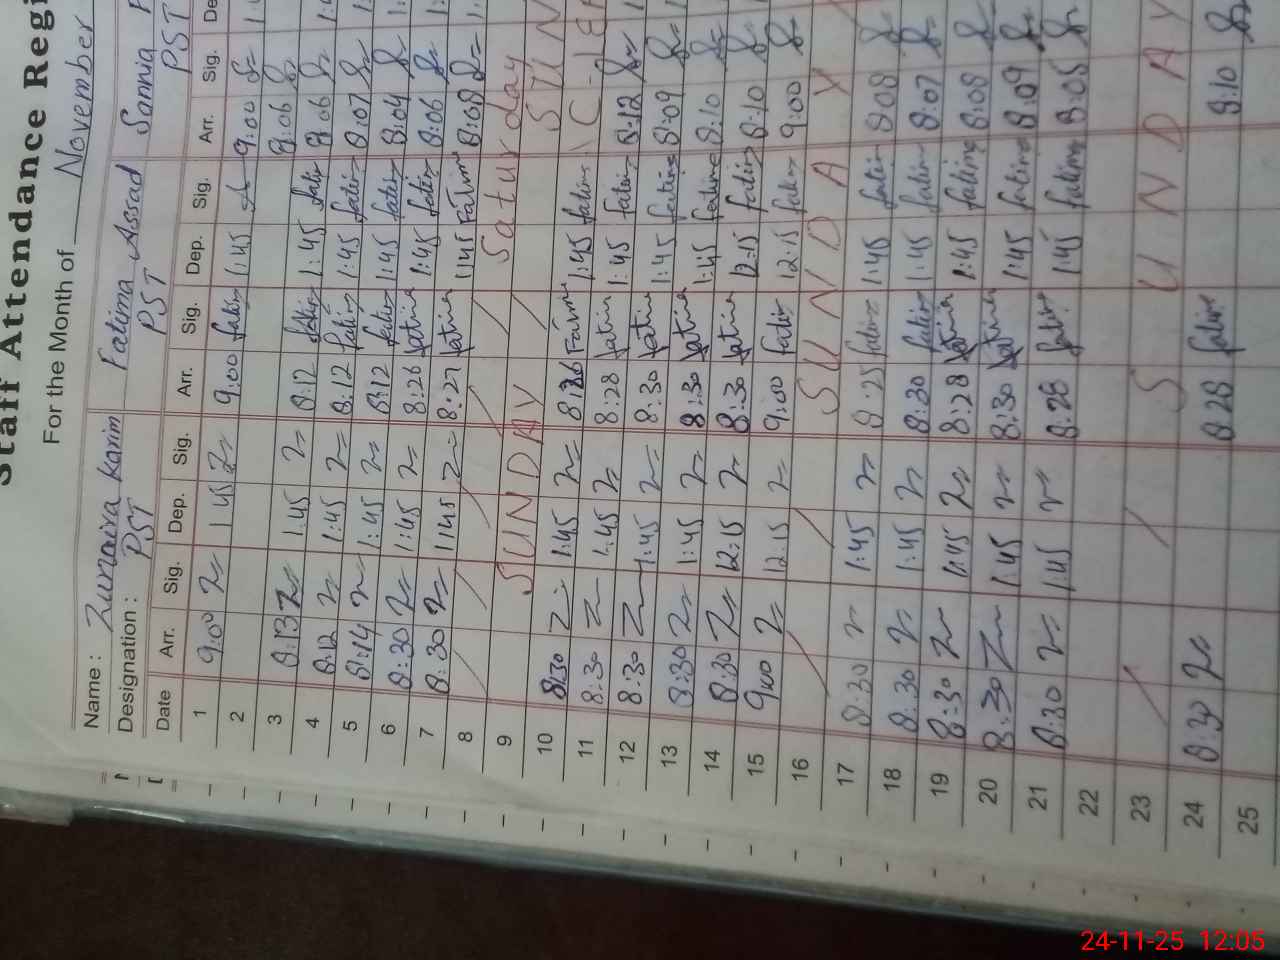 Staff Attendance Regi
For the Month of November
Name : Zunaira Karim Fatima Assad Sannia
Designation : PST PST PST
Date Arr. Sig. Dep. Sig. Arr. Sig. Dep. Sig. Arr. Sig. De
1 9:00 1:45 9:00 fatim 1:45 9:00
2 8:06
3 8:13 1:45 8:12 fatim 1:45 fatim 8:06
4 8:12 1:45 8:12 fatim 1:45 fatim 8:07
5 8:14 1:45 8:12 fatim 1:45 fatim 8:04
6 8:30 1:45 8:26 fatima 1:45 fatim 8:06
7 8:30 1:45 8:27 fatima 1:45 Fatima 8:08
8 Saturday
9 SUNDAY SUN
10 8:30 1:45 Fatima 1:45 fatima
11 8:30 1:45 8:28 fatima 1:45 fatim 8:12
12 8:30 1:45 8:30 fatima 1:45 fatima 8:09
13 8:30 1:45 8:30 fatima 1:45 fatima 8:10
14 8:30 12:15 8:30 fatima 12:15 fatim 8:10
15 9:00 12:15 9:00 fatim 12:15 fatim 9:00
16 SUNDAY
17 8:30 1:45 8:25 fatim 1:45 fatim 8:08
18 8:30 1:45 8:30 fatim 1:45 fatim 8:07
19 8:30 1:45 8:28 fatima 1:45 fatim 8:08
20 8:30 1:45 8:30 fatima 1:45 fatima 8:09
21 8:30 1:45 8:28 fatim 1:45 fatima 8:05
22
23 SUNDAY
24 8:30 8:28 fatim 8:10
25
24-11-25 12:05